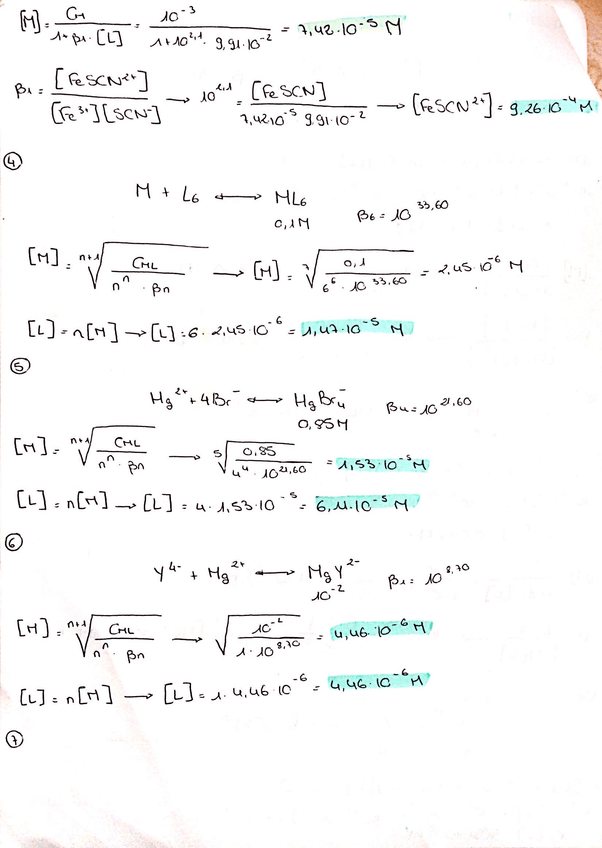 [M] = CM / 1+β1·[L] = 10⁻³ / 1+10²·¹· 9,91·10⁻² = 7,42·10⁻⁵ M
β1 = [FeSCN²⁺] / [Fe³⁺][SCN⁻] → 10²·¹ = [FeSCN] / 7,42·10⁻⁵ 9,91·10⁻² → [FeSCN²⁺] = 9.26·10⁻⁴ M
④
M + L6 ⟷ ML6
0,1M
β6 = 10³³,⁶⁰
[M] = ⁿ⁺¹√(CML / nⁿ · βn) → [M] = ⁷√(0,1 / 6⁶ · 10³³,⁶⁰) = 2,45·10⁻⁶ M
[L] = n[M] → [L] = 6 · 2,45·10⁻⁶ = 1,47·10⁻⁵ M
⑤
Hg²⁺ + 4Br⁻ ⟷ HgBr4⁻
0,85M
β4 = 10²¹,⁶⁰
[M] = ⁿ⁺¹√(CML / nⁿ · βn) → ⁵√(0,85 / 4⁴ · 10²¹,⁶⁰) = 1,53·10⁻⁵ M
[L] = n[M] → [L] = 4 · 1,53·10⁻⁵ = 6,11·10⁻⁵ M
⑥
Y⁴⁻ + Mg²⁺ ⟷ MgY²⁻
10⁻²
β1 = 10⁸,⁷⁰
[M] = ⁿ⁺¹√(CML / nⁿ · βn) → √(10⁻² / 1 · 10⁸,⁷⁰) = 4,46·10⁻⁶ M
[L] = n[M] → [L] = 1 · 4,46·10⁻⁶ = 4,46·10⁻⁶ M
⑦